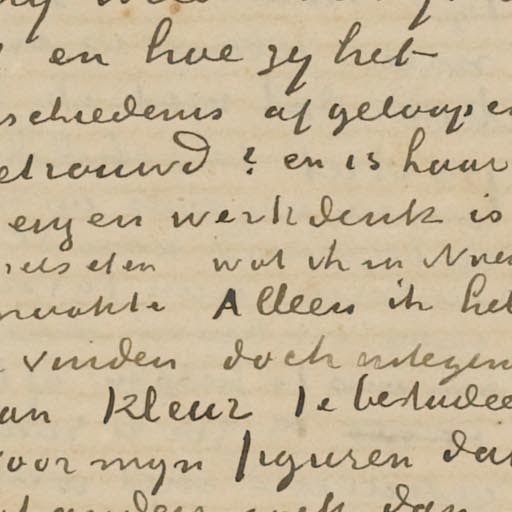 en hoe zy het
schiedenis afgeloopen
etrouwd? en is haar
eigen werk denk is
wat ik in Nuen
maakte Alleen ik heb
vinden doch integen
an kleur te bestudee
voor myn figuren dat
dan